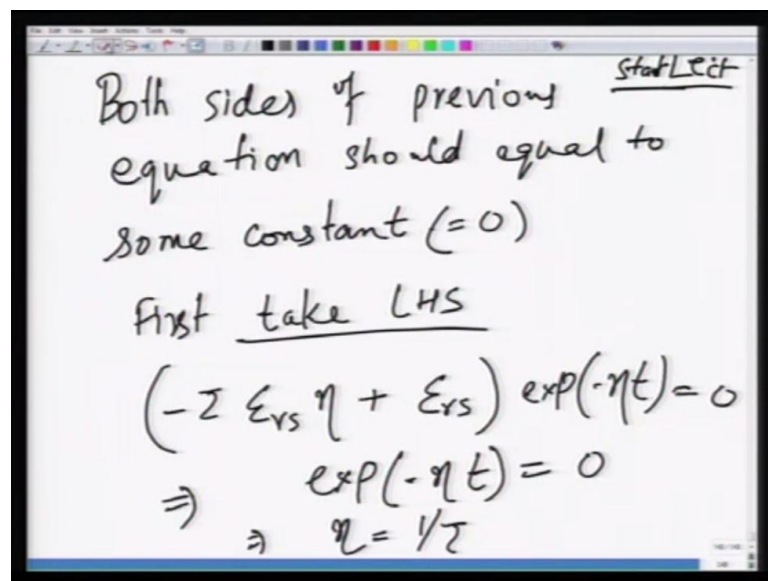 Start Lect
Both sides of previous
equation should equal to
some constant (=0)
First take LHS
(-τ ε_rs η + ε_rs) exp(-ηt) = 0
⇒ exp(-ηt) = 0
⇒ η = 1/τ